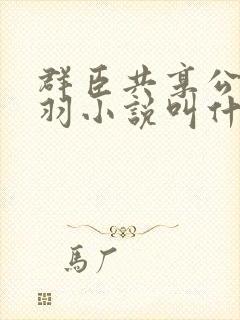 群臣共享公
羽小說叫什
馬厂